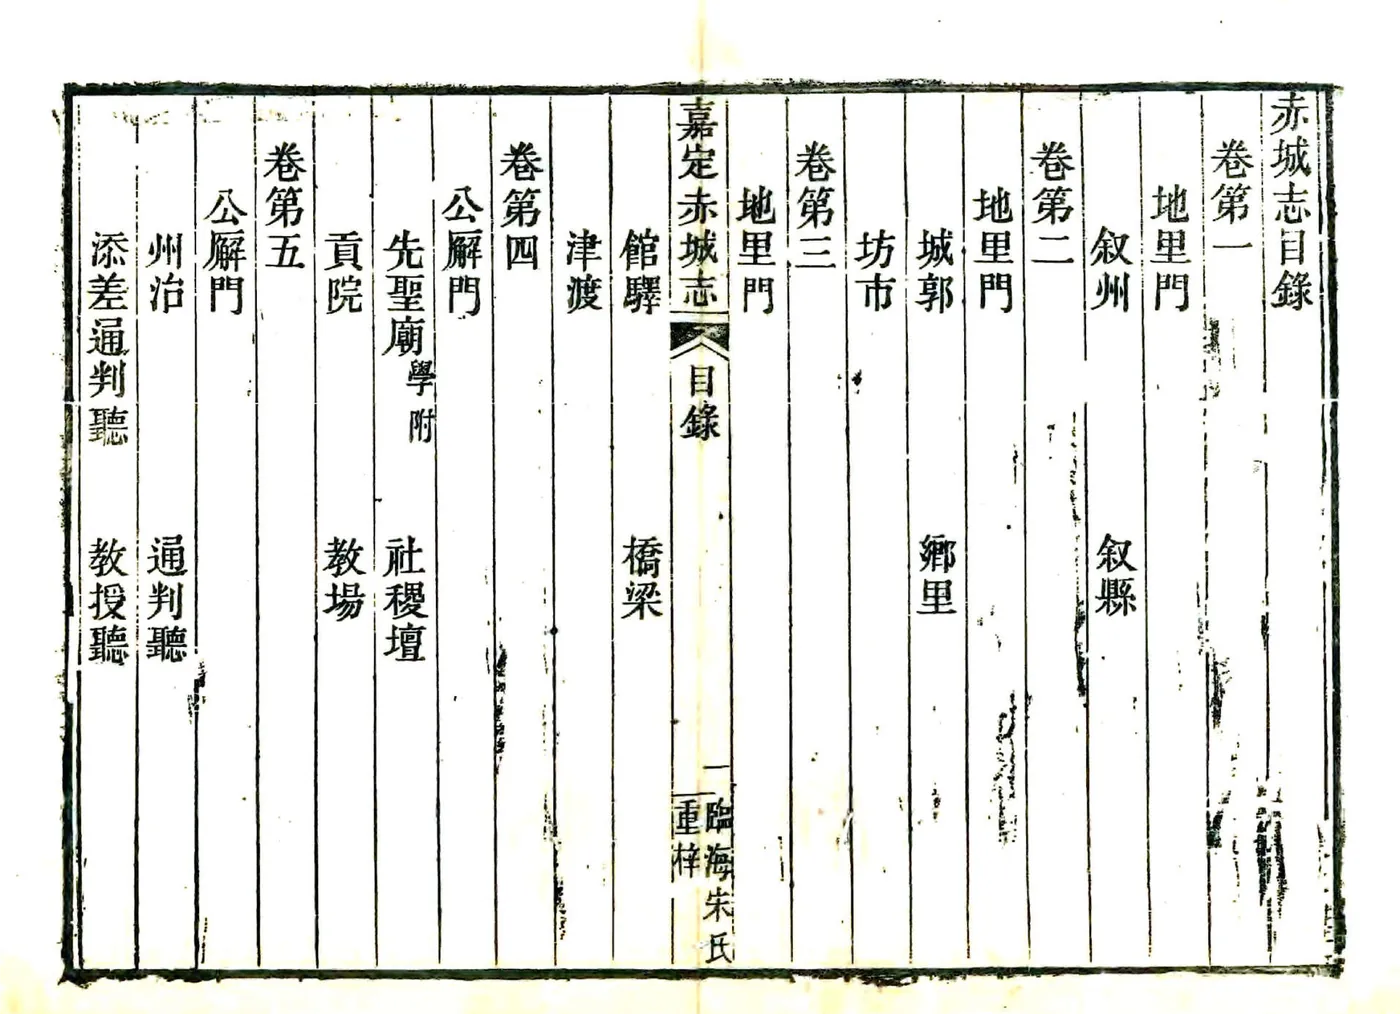 赤城志目錄
卷第一
地里門
叙州 叙縣
卷第二
地里門
城郭 鄉里
坊市
卷第三
地里門
嘉定赤城志 目錄 一 臨海朱氏
重梓
館驛 橋梁
津渡
卷第四
公廨門
先聖廟學附 社稷壇
貢院 教場
卷第五
公廨門
州治 通判聽
添差通判聽 教授聽